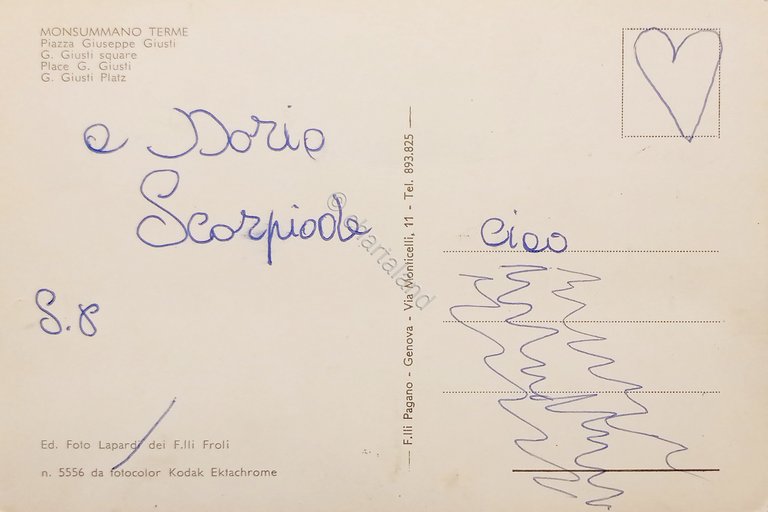 MONSUMMANO TERME
Piazza Giuseppe Giusti
G. Giusti square
Place G. Giusti
G. Giusti Platz
a Dario
S.8
Ed. Foto Lapardi dei F.lli Froli
n. 5556 da fotocolor Kodak Ektachrome
F.lli Pagano - Genova - Via Monticelli, 11 - Tel. 893.825
© chartaland
Ciao